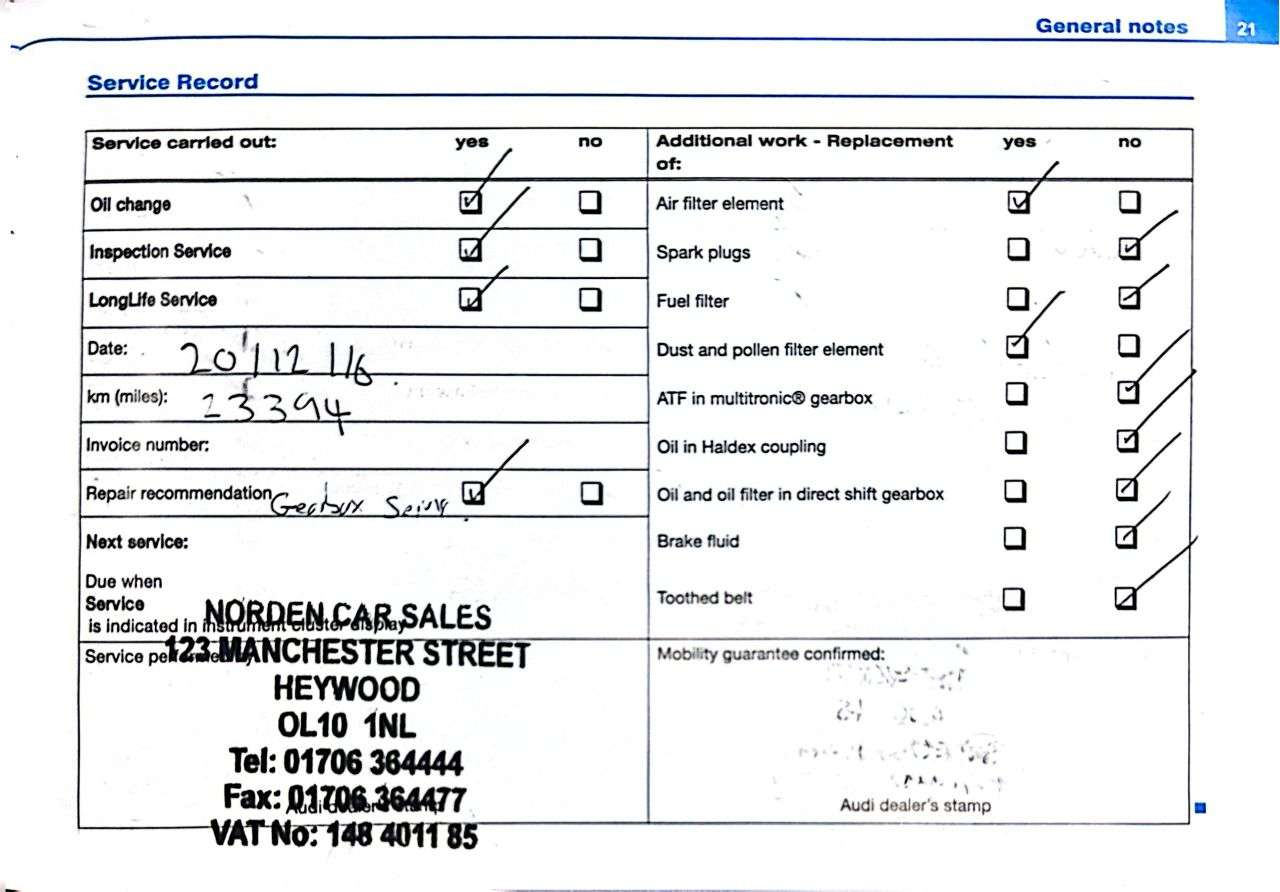 General notes 21
Service Record
Service carried out: yes no
Oil change
Inspection Service
LongLife Service
Date: 20/12/16
km (miles): 23394
Invoice number:
Repair recommendation Gearbox
Next service:
Due when
Service
is indicated in instrument cluster display
Service performed by
NORDEN CAR SALES
123 MANCHESTER STREET
HEYWOOD
OL10 1NL
Tel: 01706 364444
Fax: 01706 364477
VAT No: 148 4011 85
Audi dealer's stamp
Additional work - Replacement of: yes no
Air filter element
Spark plugs
Fuel filter
Dust and pollen filter element
ATF in multitronic® gearbox
Oil in Haldex coupling
Oil and oil filter in direct shift gearbox
Brake fluid
Toothed belt
Mobility guarantee confirmed:
Audi dealer's stamp